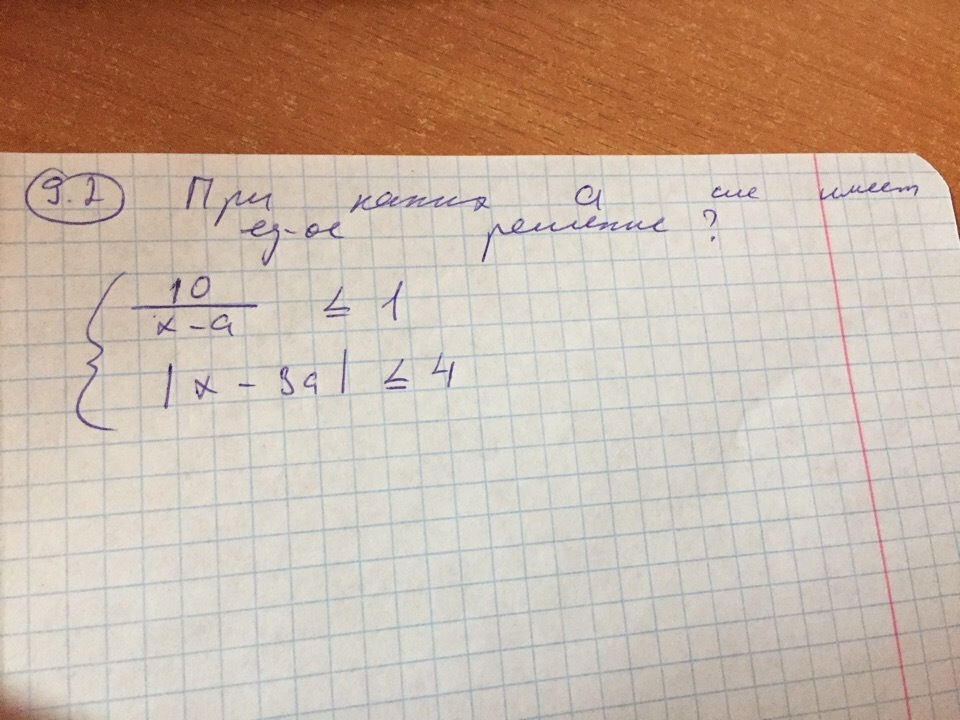 9.2 При каких a сис имеет
ед-ое решение?
10
x-a ≤ 1
|x - 3a| ≤ 4